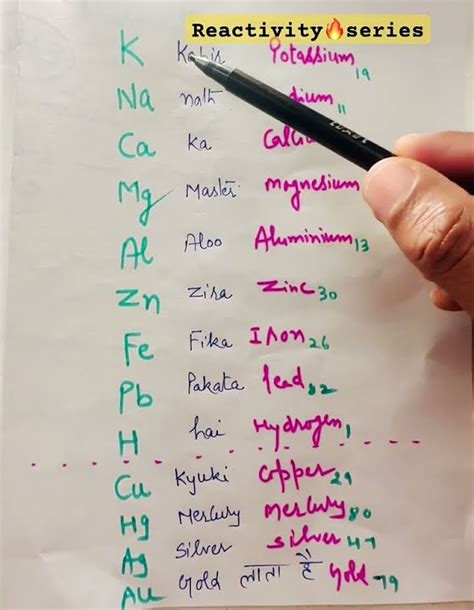 Reactivity🔥series
K Kabir Potassium 19
Na nath dium 11
Ca Ka Calciu
Mg Master magnesium
Al Aloo Aluminium 13
Zn Zira Zinc 30
Fe Fika Iron 26
Pb Pakata lead 82
H hai Hydrogen 1
Cu Kyuki Copper 29
Hg Mercury mercury 80
Ag Silver silver 47
Au Gold लाता है gold 79